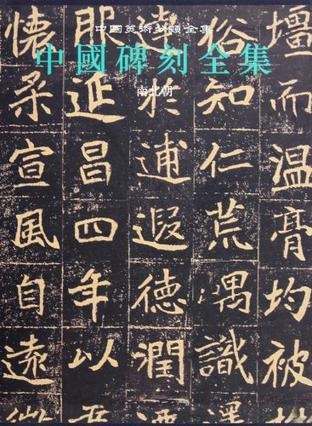 中國美術分類全集
中國碑刻全集
南北朝
而溫膏均被
俗知仁荒嵎識
於逋遐德潤
即延昌四年以
懷柔宣風自遠